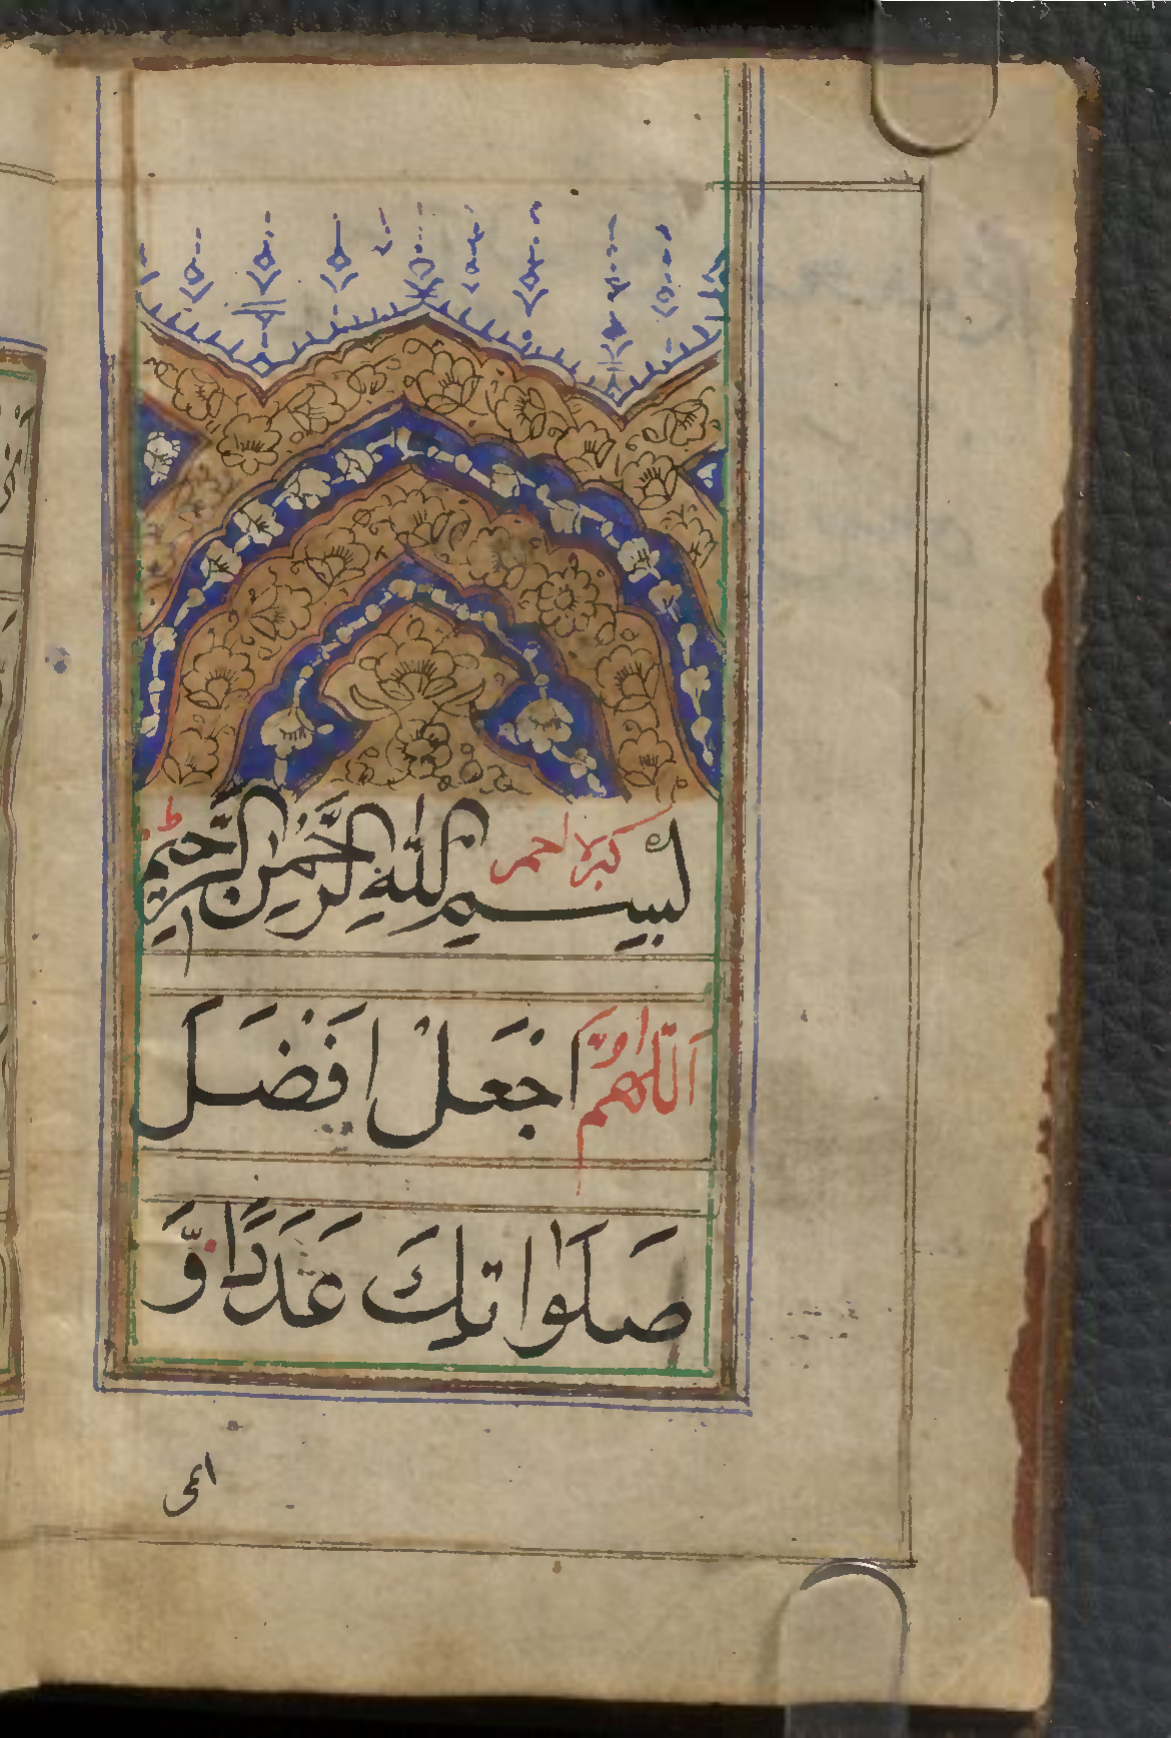 كبر احمر
بِسْمِ اللّٰهِ الرَّحْمٰنِ الرَّحِيْمِ
اَللّٰهُمَّ اجْعَلْ اَفْضَلَ
صَلَوَاتِكَ عَدَدًا وَّ